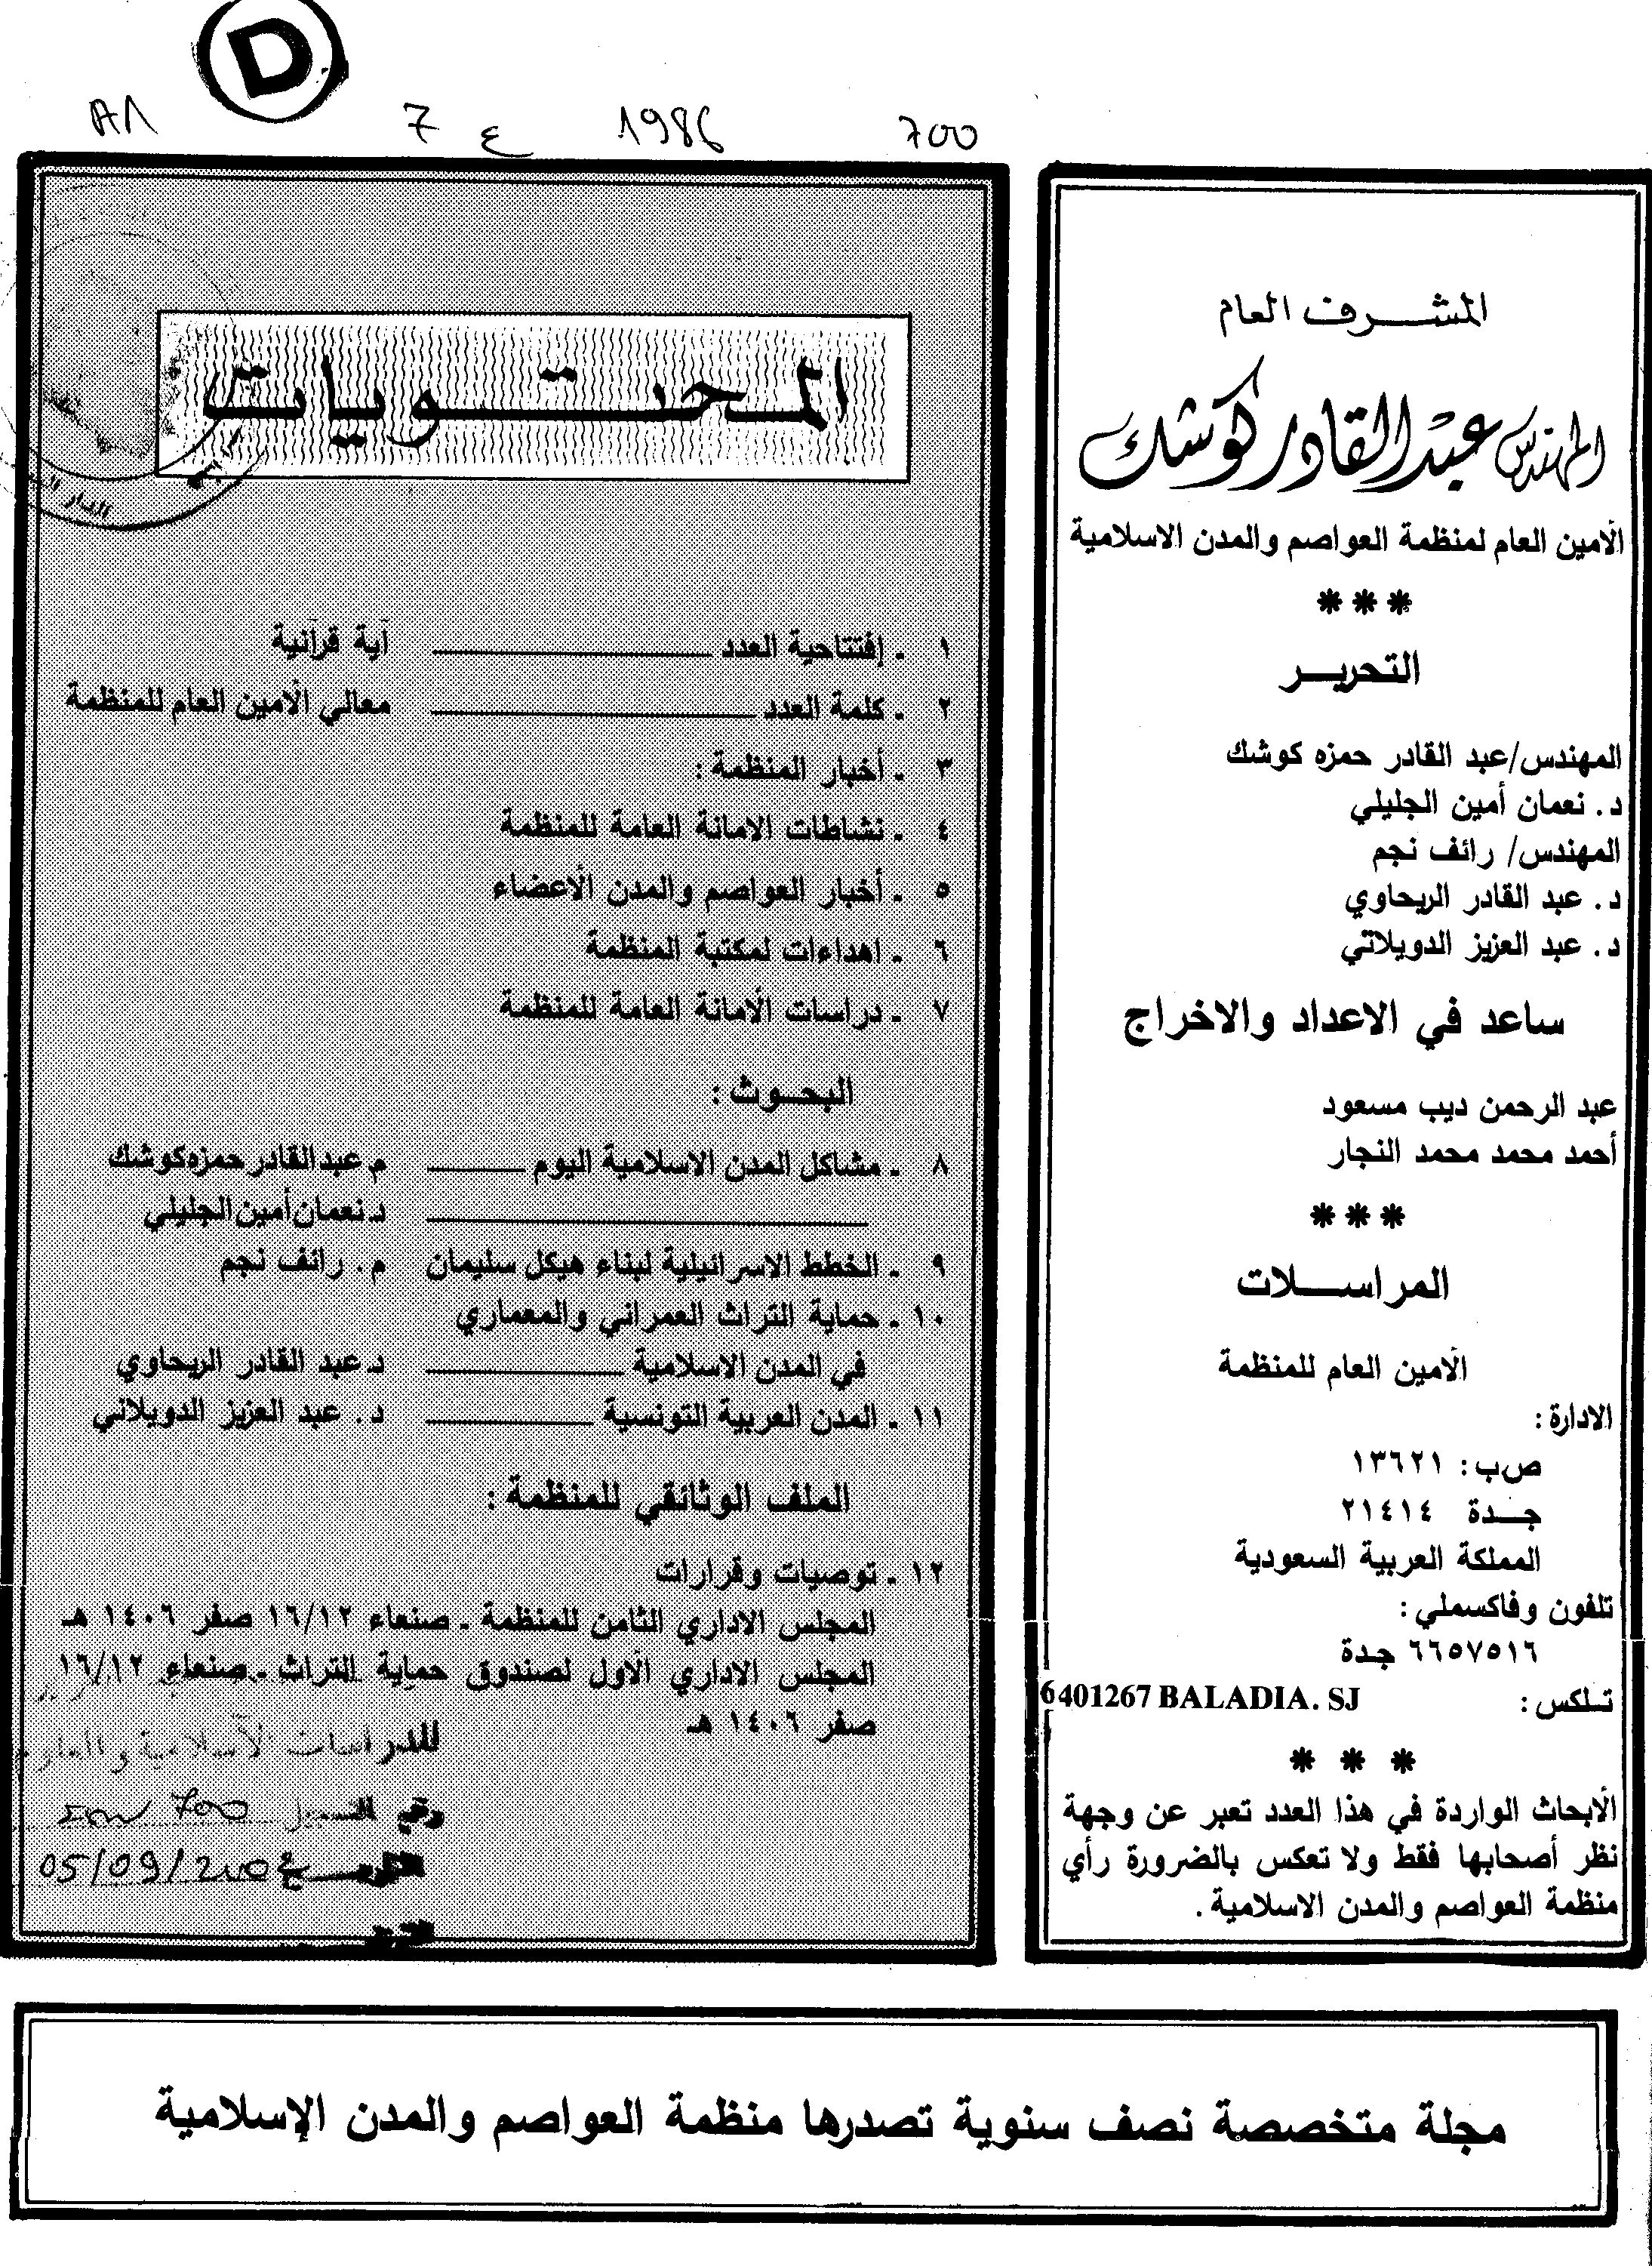 D
A1 7 ع 1986 700
المشرف العام
المهندس عبد القادر كوشك
الأمين العام لمنظمة العواصم والمدن الاسلامية
***
التحرير
المهندس/عبد القادر حمزه كوشك
د. نعمان أمين الجليلي
المهندس/ رائف نجم
د. عبد القادر الريحاوي
د. عبد العزيز الدويلاتي
ساعد في الاعداد والاخراج
عبد الرحمن ديب مسعود
أحمد محمد محمد النجار
***
المراسلات
الأمين العام للمنظمة
الادارة :
ص ب : ١٣٦٢١
جدة ٢١٤١٤
المملكة العربية السعودية
تلفون وفاكسملي :
٦٦٥٧٥١٦ جدة
تلكس : 6401267 BALADIA. SJ
* * *
الأبحاث الواردة في هذا العدد تعبر عن وجهة
نظر أصحابها فقط ولا تعكس بالضرورة رأي
منظمة العواصم والمدن الاسلامية .
المحتويات
١ - إفتتاحية العدد آية قرآنية
٢ - كلمة العدد معالي الأمين العام للمنظمة
٣ - أخبار المنظمة :
٤ - نشاطات الامانة العامة للمنظمة
٥ - أخبار العواصم والمدن الأعضاء
٦ - اهداءات لمكتبة المنظمة
٧ - دراسات الأمانة العامة للمنظمة
البحوث :
٨ - مشاكل المدن الاسلامية اليوم م.عبدالقادر حمزه كوشك
د.نعمان أمين الجليلي
٩ - الخطط الاسرائيلية لبناء هيكل سليمان م. رائف نجم
١٠ - حماية التراث العمراني والمعماري
في المدن الاسلامية د.عبد القادر الريحاوي
١١ - المدن العربية التونسية د. عبد العزيز الدويلاتي
الملف الوثائقي للمنظمة :
١٢ - توصيات وقرارات
المجلس الاداري الثامن للمنظمة - صنعاء ١٦/١٢ صفر ١٤٠٦ هـ
المجلس الاداري الأول لصندوق حماية التراث - صنعاء ١٦/١٢
صفر ١٤٠٦ هـ
للدراسات الاسلامية والعلوم
رقم التسجيل 700
05/09/2100
مجلة متخصصة نصف سنوية تصدرها منظمة العواصم والمدن الإسلامية